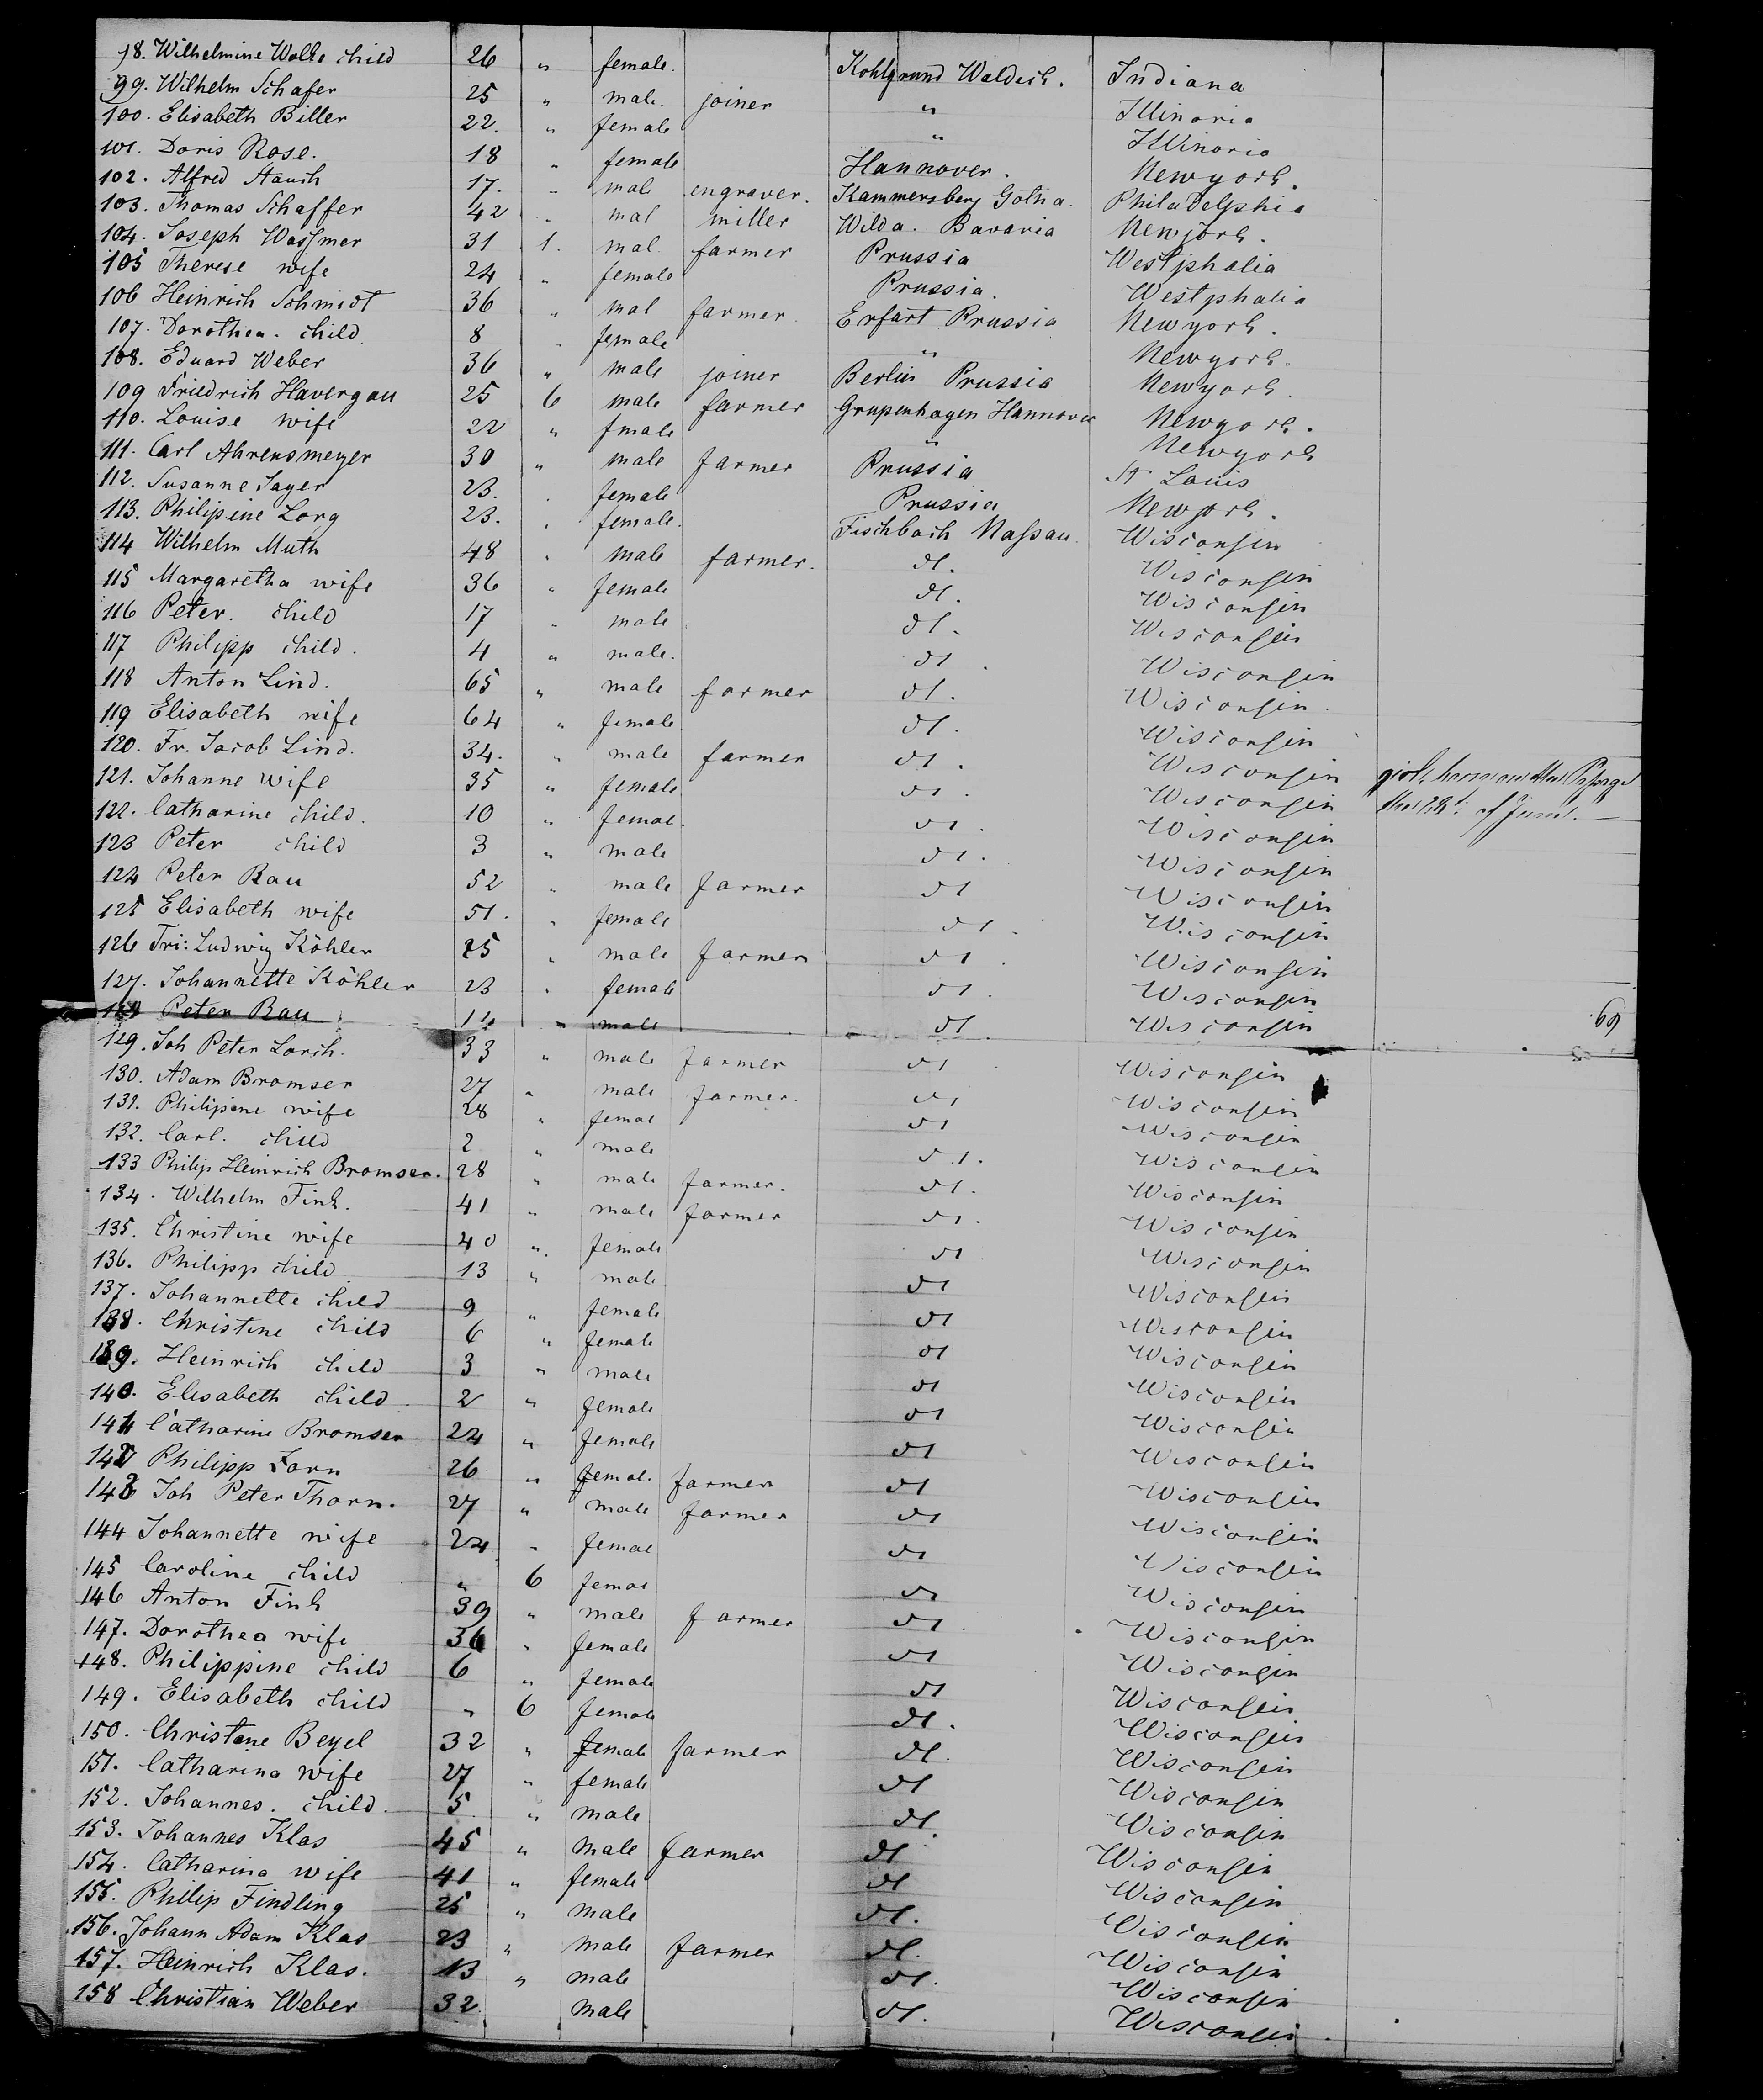 98. Wilhelmine Wolke child 26 " female. Kohlgrund Waldeck. Indiana
99. Wilhelm Schafer 25 " male. joiner " Illinoria
100. Elisabeth Biller 22. " female " Illinoria
101. Doris Rose. 18 " female Hannover. Newyork.
102. Alfred Stauch 17. " male engraver. Kammersberg Gotha. Philadelphia
103. Thomas Schaffer 42 " mal miller Wilda. Bavaria Newjork.
104. Joseph Wassmer 31 1. mal. farmer Prussia Westphalia
105 Therese wife 24 " female Prussia. Westphalia
106 Heinrich Schmidt 36 " mal farmer Erfart Prussia Newyork.
107. Dorothea. child 8 " female " Newyork.
108. Eduard Weber 36 " male joiner Berlin Prussia Newyork.
109 Friedrich Havergau 25 6 male farmer Grupenhagen Hannover Newyork.
110. Louise wife 22 " fmale " Newyork
111. Carl Ahrensmeyer 30 " male farmer Prussia St Louis
112. Susanne Sayer 23. " female Prussia Newyork.
113. Philipine Lorg 23. " female. Fischbach Nassau Wisconsin
114 Wilhelm Muth 48 " male farmer. dt. Wisconsin
115 Margaretha wife 36 " female dt. Wisconsin
116 Peter. child 17 " male dt. Wisconsin
117 Philipp child. 4 " male. dt. Wisconsin
118 Anton Lind. 65 " male farmer dt. Wisconsin.
119 Elisabeth wife 64 " female dt. Wisconsin
120. Fr. Jacob Lind. 34. " male farmer dt. Wisconsin
121. Johanne wife 35 " female dt. Wisconsin
122. Catharine child. 10 " femal. dt. Wisconsin
123 Peter child 3 " male dt. Wisconsin
124 Peter Rau 52 " male farmer dt Wisconsin
125 Elisabeth wife 51. " female dt. Wisconsin
126 Fri: Ludwig Köhler 25 " male farmer dt. Wisconsin
127. Johannette Köhler 23 " female dt. Wisconsin
128 Peter Rau 14 " male dt Wisconsin 69
129. Joh Peter Lorch. 33 " male farmer dt Wisconsin
130. Adam Bromser 27 " male farmer. dt Wisconsin
131. Philipine wife 28 " femal dt Wisconsin
132. Carl. child 2 " male dt. Wisconsin
133 Philip Heinrich Bromser. 28 " male farmer. dt. Wisconsin
134. Wilhelm Fink. 41 " male farmer dt. Wisconsin
135. Christine wife 40 " female dt. Wisconsin
136. Philipp child 13 " male dt Wisconsin
137. Johannette child 9 " female dt Wisconsin
138. Christine child 6 " female dt Wisconsin
139. Heinrich child 3 " male dt Wisconsin
140. Elisabeth child 2 " female dt Wisconsin
141 Catharine Bromser 24 " female dt Wisconsin
142 Philipp Forn 26 " femal. farmer dt Wisconsin
143 Joh Peter Thorn. 27 " male farmer dt Wisconsin
144 Johannette wife 24 " femal dt Wisconsin
145 Caroline child " 6 femal dt Wisconsin
146 Anton Fink 39 " male farmer dt. Wisconsin
147. Dorothea wife 36 " female dt Wisconsin
148. Philippine child 6 " female dt Wisconsin
149. Elisabeth child " 6 female dt. Wisconsin
150. Christane Beyel 32 " female farmer dt. Wisconsin
151. Catharina wife 27 " female dt Wisconsin
152. Johannes. child. 5 " male dt. Wisconsin
153. Johannes Klas 45 " male farmer dt Wisconsin
154. Catharina wife 41 " female dt Wisconsin
155. Philip Findling 25 " male dt. Wisconsin
156. Johann Adam Klas 23 " male farmer dt. Wisconsin
157. Heinrich Klas. 13 " male dt. Wisconsin
158 Christian Weber 32 male dt. Wisconsin.